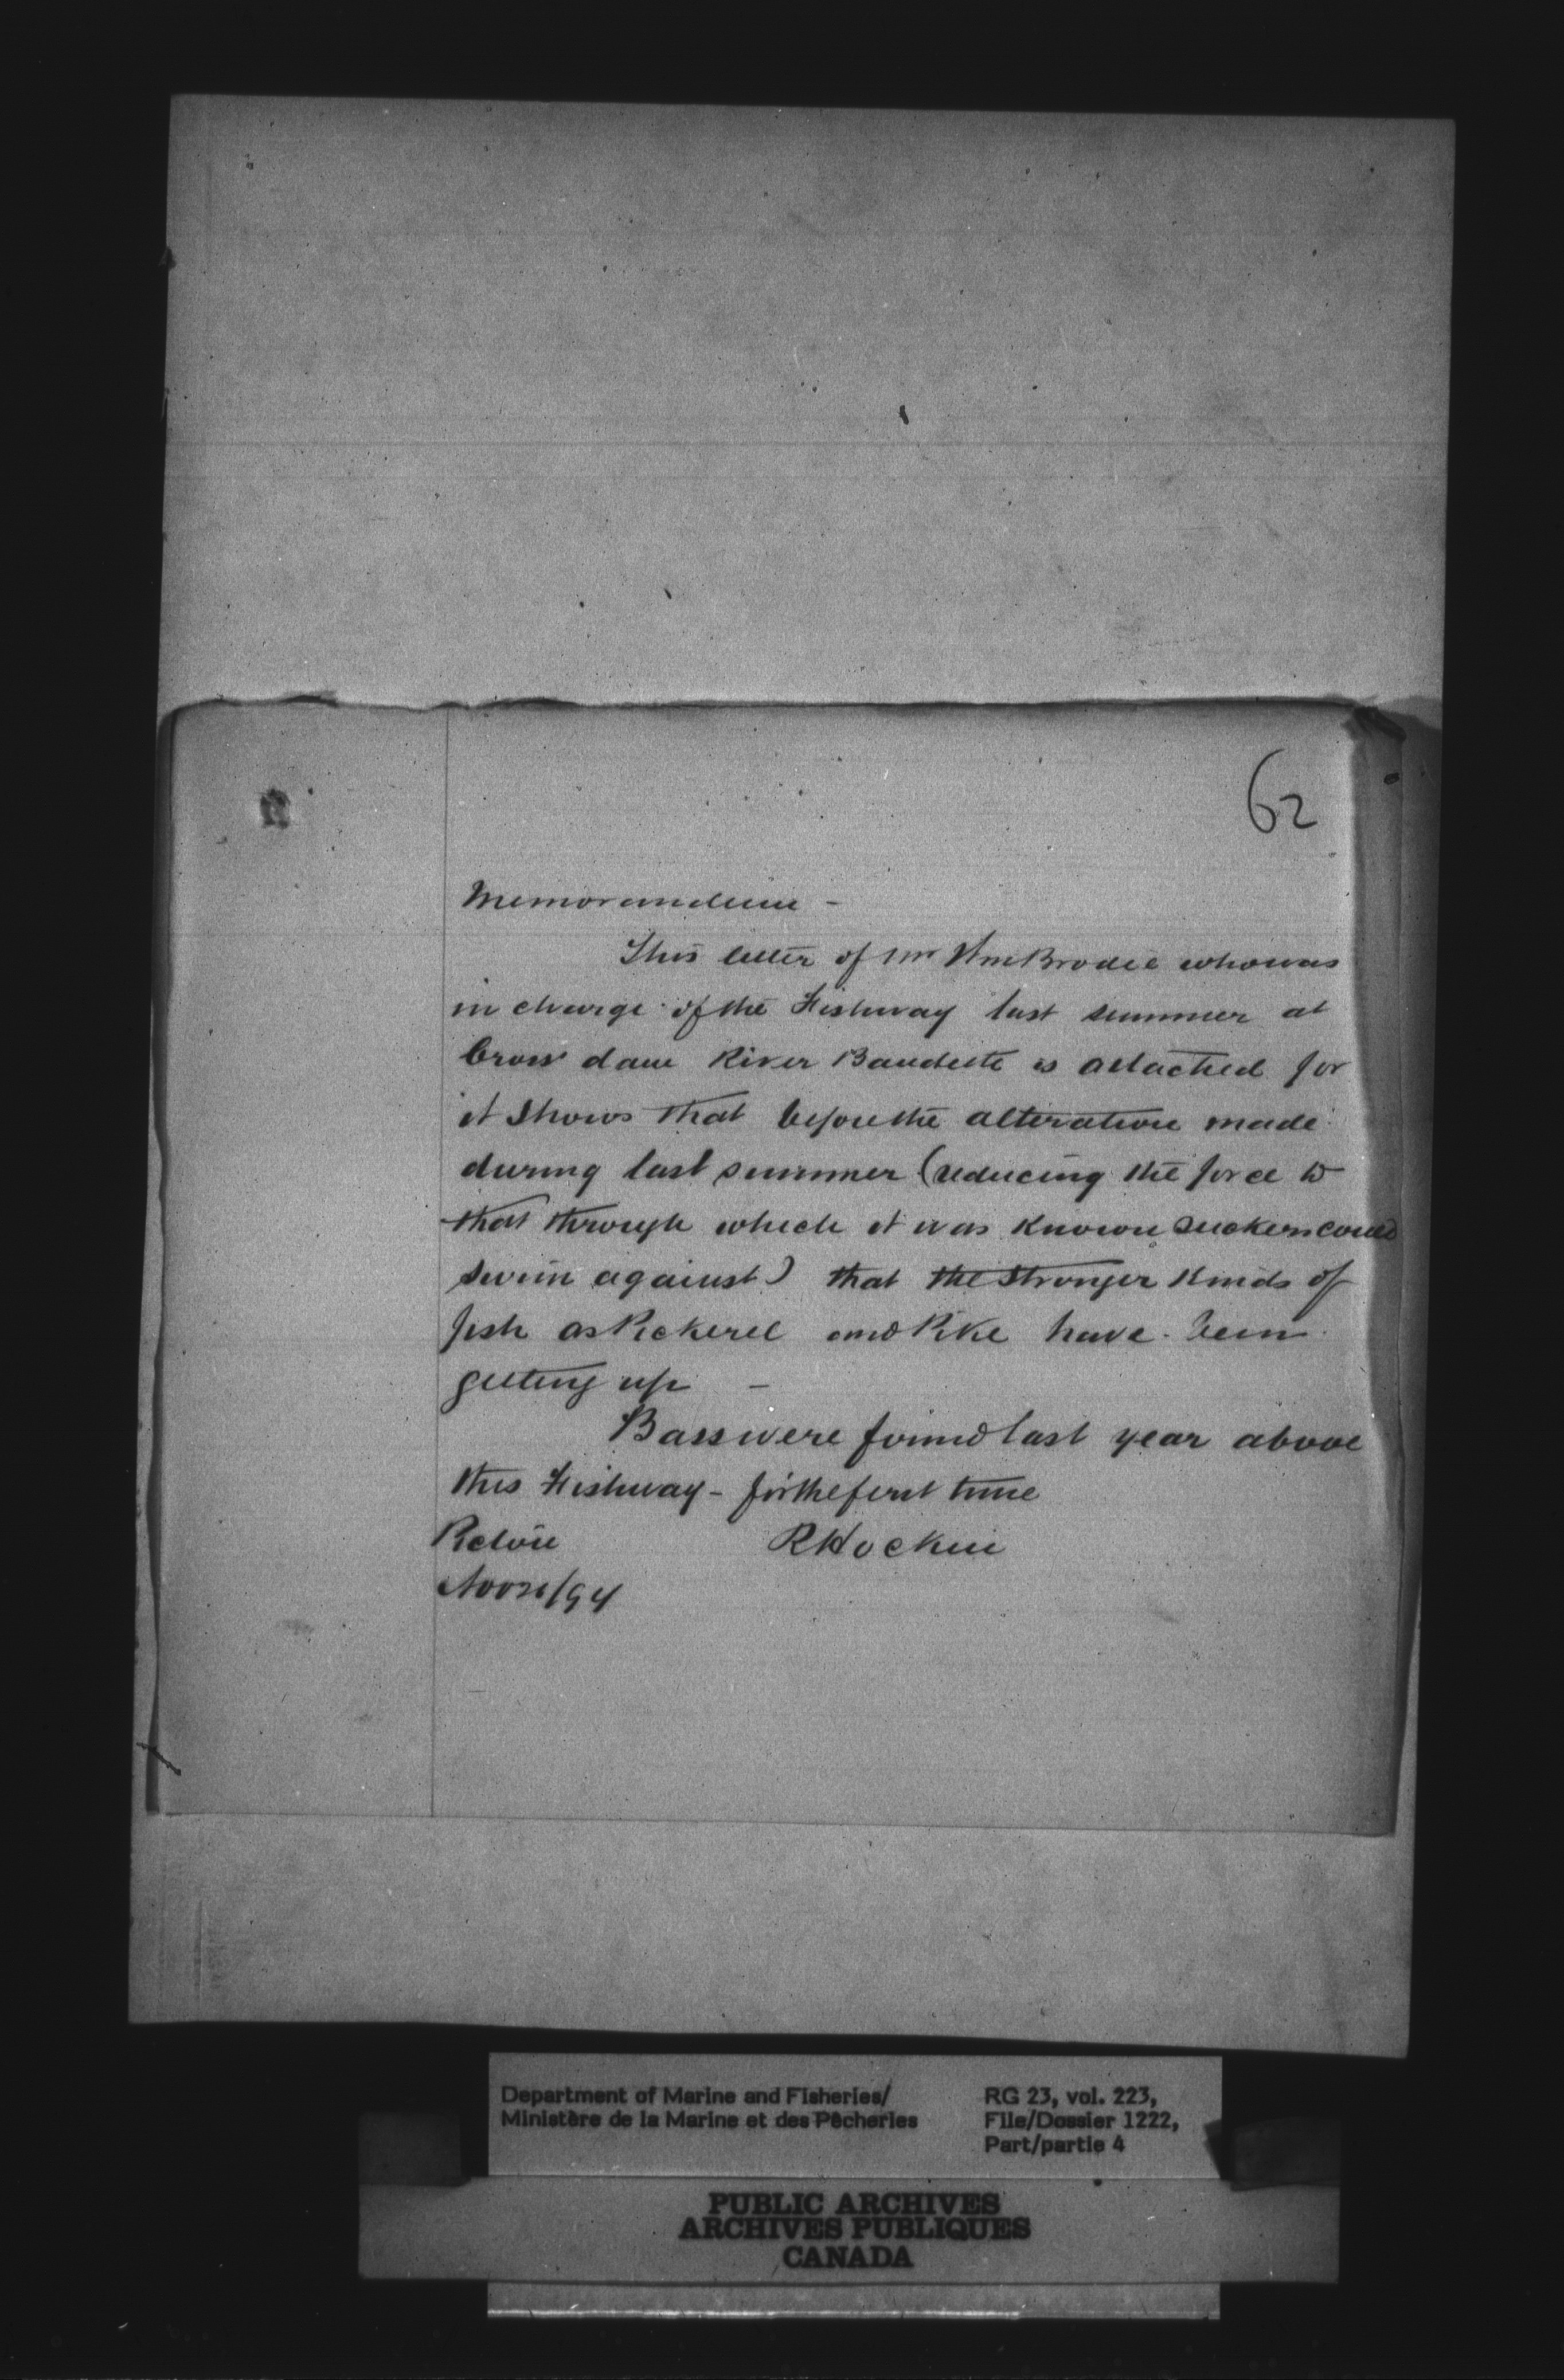 62
Memorandum -
This letter of Mr Wm Brodie who was
in charge of the Fishway last summer at
Cross dam River Baudette is attached for
it shows that before the alteration made
during last summer (reducing the force to
that through which it was known suckers could
swim against) that the stronger kinds of
fish as Pickerel and Pike have been
getting up -
Bass were found last year above
this Fishway - for the first time
Pictou
R Hockin
Department of Marine and Fisheries/
Ministère de la Marine et des Pêcheries
RG 23, vol. 223,
File/Dossier 1222,
Part/partie 4
PUBLIC ARCHIVES
ARCHIVES PUBLIQUES
CANADA